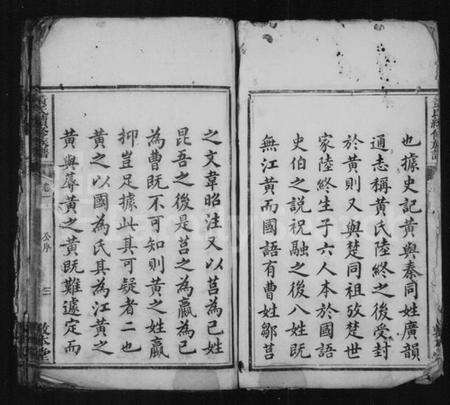 也據史記黃與秦同姓廣韻
通志稱黃氏陸終之後受封
於黃則又與楚同祖攷楚世
家陸終生子六人本於國語
史伯之說祝融之後八姓旣
無江黃而國語有曹姓鄒莒
之文韋昭注又以莒為己姓
昆吾之後是莒之為嬴為己
為曹旣不可知則黃之姓嬴
抑豈足據此其可疑者二也
黃之以國為氏其為江黃之
黃與蓐黃之黃旣難遽定而
卷一
公序
三
敦本堂